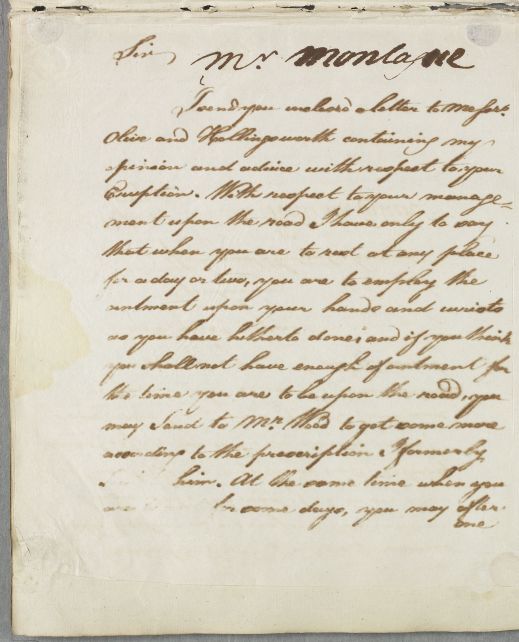 Sir
Mr Montague
I send you inclosed a letter to Messrs.
Olive and Hollingsworth containing my
opinion and advice with respect to your
Eruption. With respect to your manage=
ment upon the road I have only to say
that when you are to rest at any place
for a day or two, you are to employ the
ointment upon your hands and wrists
as you have hitherto done; and if you think
you shall not have enough of ointment for
the time you are to be upon the road, you
may send to Mr. to get some more
according to the prescription I formerly
him. At the same time when you
are in some days, you may after
one